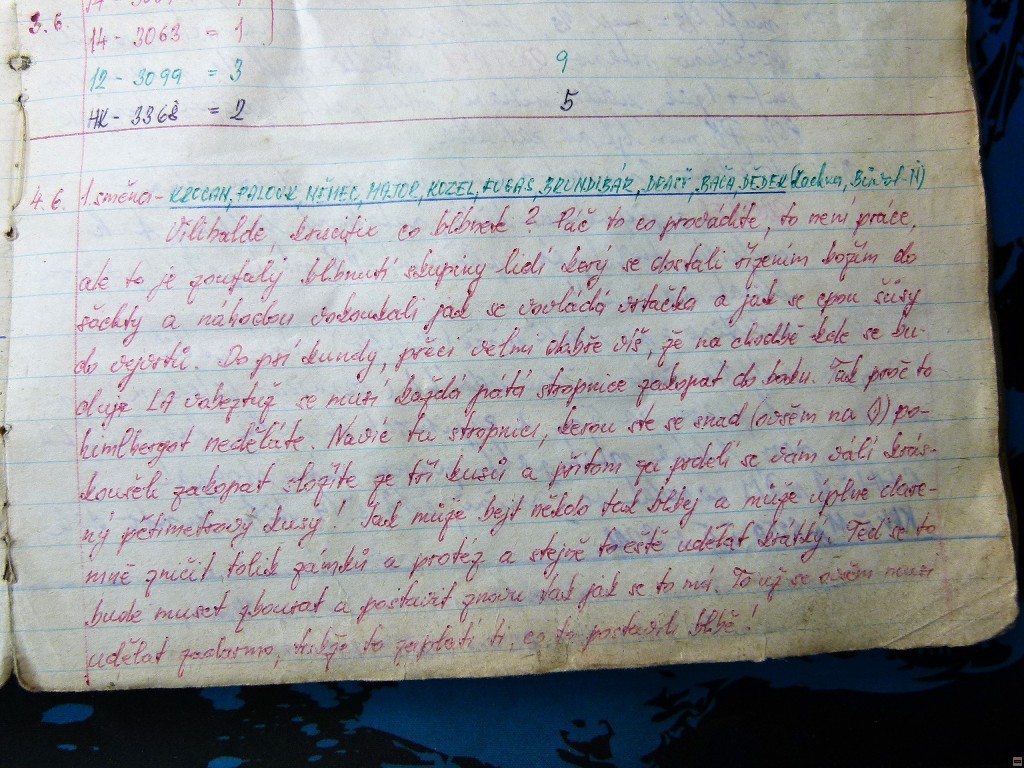 3.6.
14 - 3063 = 1
12 - 3099 = 3 9
HK - 3368 = 2 5
4.6. 1.směna - KROCAN, PALOUK, NĚMEC, MAJOR, KOZEL, FUGAS, BRUNDIBÁR, BAČA, DĚDEK
Vilibalde, krucifix co blbnete? Páč to co provádíte, to není práce,
ale to je zoufalý blbnutí skupiny lidí kerý se dostali řízením božím do
šachty a náhodou vokoukali jak se vovládá vrtačka a jak se cpou šúsy
do vejvrtů. Do psí kundy, přeci velmi dobře víš, že na chodbě kde se bu-
duje se musí každá pátá stropnice zakopat do boku. Tak proč to
himlhergot neděláte. Navíc tu stropnici, kerou ste se snad (ovšem na ) po-
koušeli zakopat složíte ze tří kusů a přitom za prdelí se vám válí krás-
ný pětimetrový kusy! Jak může bejt někdo tak blbej a může úplně dare-
mně zničit tolik zámků a protéz a stejně to eště udělat krátký. Teď se to
bude muset zbourat a postavit znovu tak jak se to má. To už se ovšem musí
udělat zadarmo, takže to zaplatí ti, co to postavili blbě!